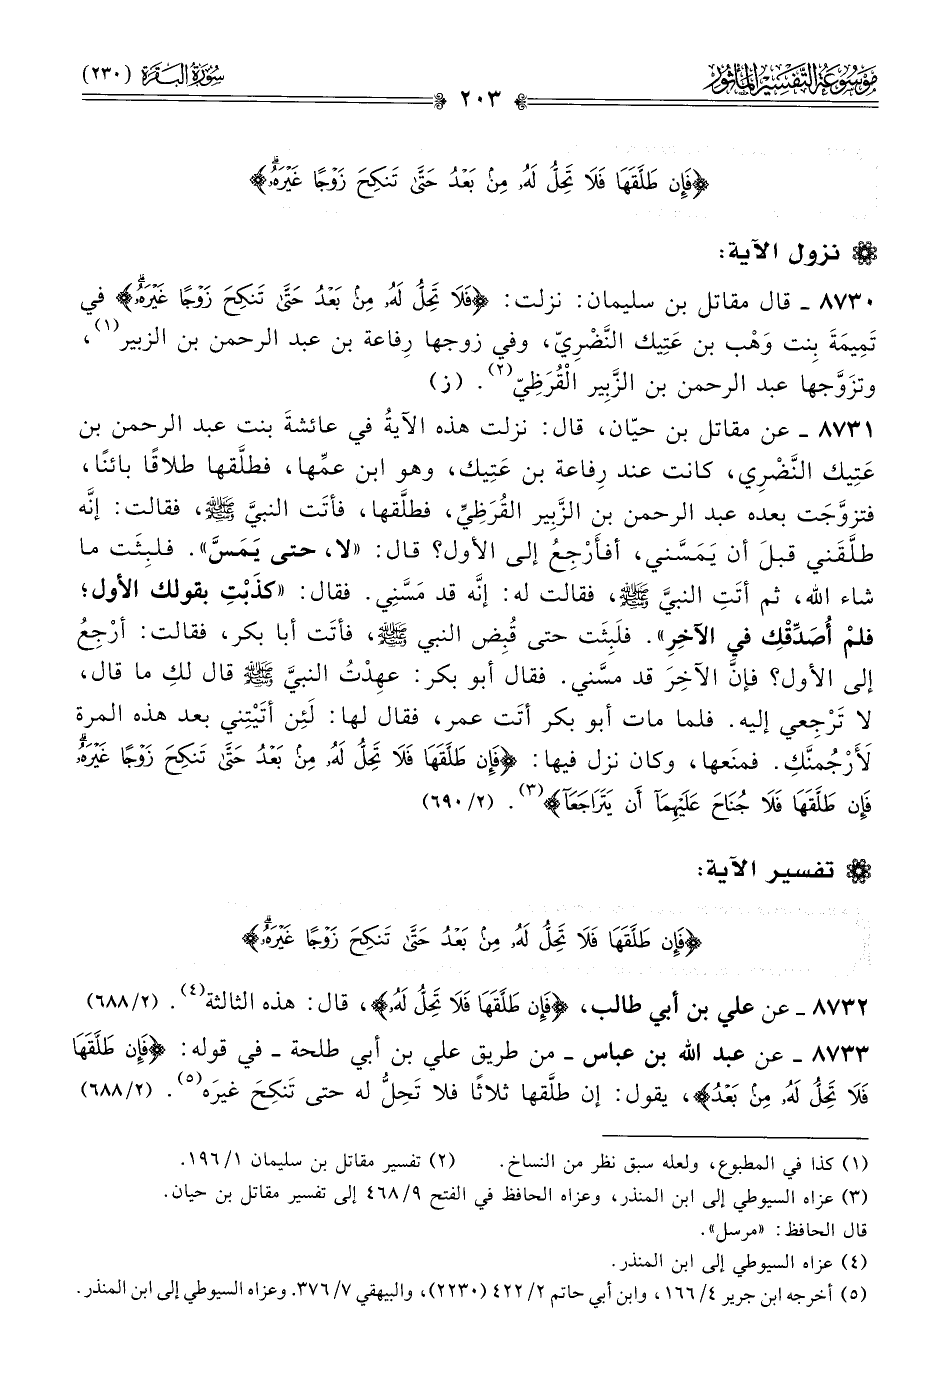 موسوعة التفسير المأثور
سورة البقرة (٢٣٠)
٢٠٣
﴿فَإِن طَلَّقَهَا فَلَا تَحِلُّ لَهُۥ مِنۢ بَعۡدُ حَتَّىٰ تَنكِحَ زَوۡجًا غَيۡرَهُۥۗ﴾
نزول الآية:
٨٧٣٠ ـ قال مقاتل بن سليمان: نزلت: ﴿فَلَا تَحِلُّ لَهُۥ مِنۢ بَعۡدُ حَتَّىٰ تَنكِحَ زَوۡجًا غَيۡرَهُۥۗ﴾ في
تَمِيمَةَ بِنت وَهْب بن عَتِيك النَّضْرِيّ، وفي زوجها رِفاعة بن عبد الرحمن بن الزبير(١)،
وتزَوَّجها عبد الرحمن بن الزَّبِير الْقُرَظِيّ(٢). (ز)
٨٧٣١ ـ عن مقاتل بن حيّان، قال: نزلت هذه الآيةُ في عائشةَ بنت عبد الرحمن بن
عَتِيك النَّضْرِي، كانت عند رِفاعة بن عَتِيك، وهو ابن عمِّها، فطلَّقها طلاقًا بائنًا،
فتزوَّجَت بعده عبد الرحمن بن الزَّبِير القُرَظِيِّ، فطلَّقها، فأتَت النبيَّ ﷺ، فقالت: إنَّه
طلَّقني قبلَ أن يَمَسَّني، أفأَرْجِعُ إلى الأول؟ قال: «لا، حتى يَمَسَّ». فلَبِثَت ما
شاء الله، ثم أتَتِ النبيَّ ﷺ، فقالت له: إنَّه قد مَسَّنِي. فقال: «كذَبْتِ بقولك الأول؛
فلمْ أُصَدِّقْكِ في الآخرِ». فلَبِثَت حتى قُبِض النبي ﷺ، فأتَت أبا بكر، فقالت: أرْجِعُ
إلى الأول؟ فإنَّ الآخِرَ قد مسَّني. فقال أبو بكر: عهِدْتُ النبيَّ ﷺ قال لكِ ما قال،
لا تَرْجِعي إليه. فلما مات أبو بكر أتَت عمر، فقال لها: لَئِن أتَيْتِني بعد هذه المرة
لَأَرْجُمنَّكِ. فمنَعها، وكان نزل فيها: ﴿فَإِن طَلَّقَهَا فَلَا تَحِلُّ لَهُۥ مِنۢ بَعۡدُ حَتَّىٰ تَنكِحَ زَوۡجًا غَيۡرَهُۥۗ
فَإِن طَلَّقَهَا فَلَا جُنَاحَ عَلَيۡهِمَآ أَن يَتَرَاجَعَآ﴾(٣). (٦٩٠/٢)
تفسير الآية:
﴿فَإِن طَلَّقَهَا فَلَا تَحِلُّ لَهُۥ مِنۢ بَعۡدُ حَتَّىٰ تَنكِحَ زَوۡجًا غَيۡرَهُۥۗ﴾
٨٧٣٢ ـ عن علي بن أبي طالب، ﴿فَإِن طَلَّقَهَا فَلَا تَحِلُّ لَهُۥ﴾، قال: هذه الثالثة(٤). (٦٨٨/٢)
٨٧٣٣ ـ عن عبد الله بن عباس ـ من طريق علي بن أبي طلحة ـ في قوله: ﴿فَإِن طَلَّقَهَا
فَلَا تَحِلُّ لَهُۥ مِنۢ بَعۡدُ﴾، يقول: إن طلَّقها ثلاثًا فلا تَحِلُّ له حتى تَنكِحَ غيرَه(٥). (٦٨٨/٢)
(١) كذا في المطبوع، ولعله سبق نظر من النساخ. (٢) تفسير مقاتل بن سليمان ١٩٦/١.
(٣) عزاه السيوطي إلى ابن المنذر، وعزاه الحافظ في الفتح ٤٦٨/٩ إلى تفسير مقاتل بن حيان.
قال الحافظ: «مرسل».
(٤) عزاه السيوطي إلى ابن المنذر.
(٥) أخرجه ابن جرير ١٦٦/٤، وابن أبي حاتم ٤٢٢/٢ (٢٢٣٠)، والبيهقي ٣٧٦/٧. وعزاه السيوطي إلى ابن المنذر.